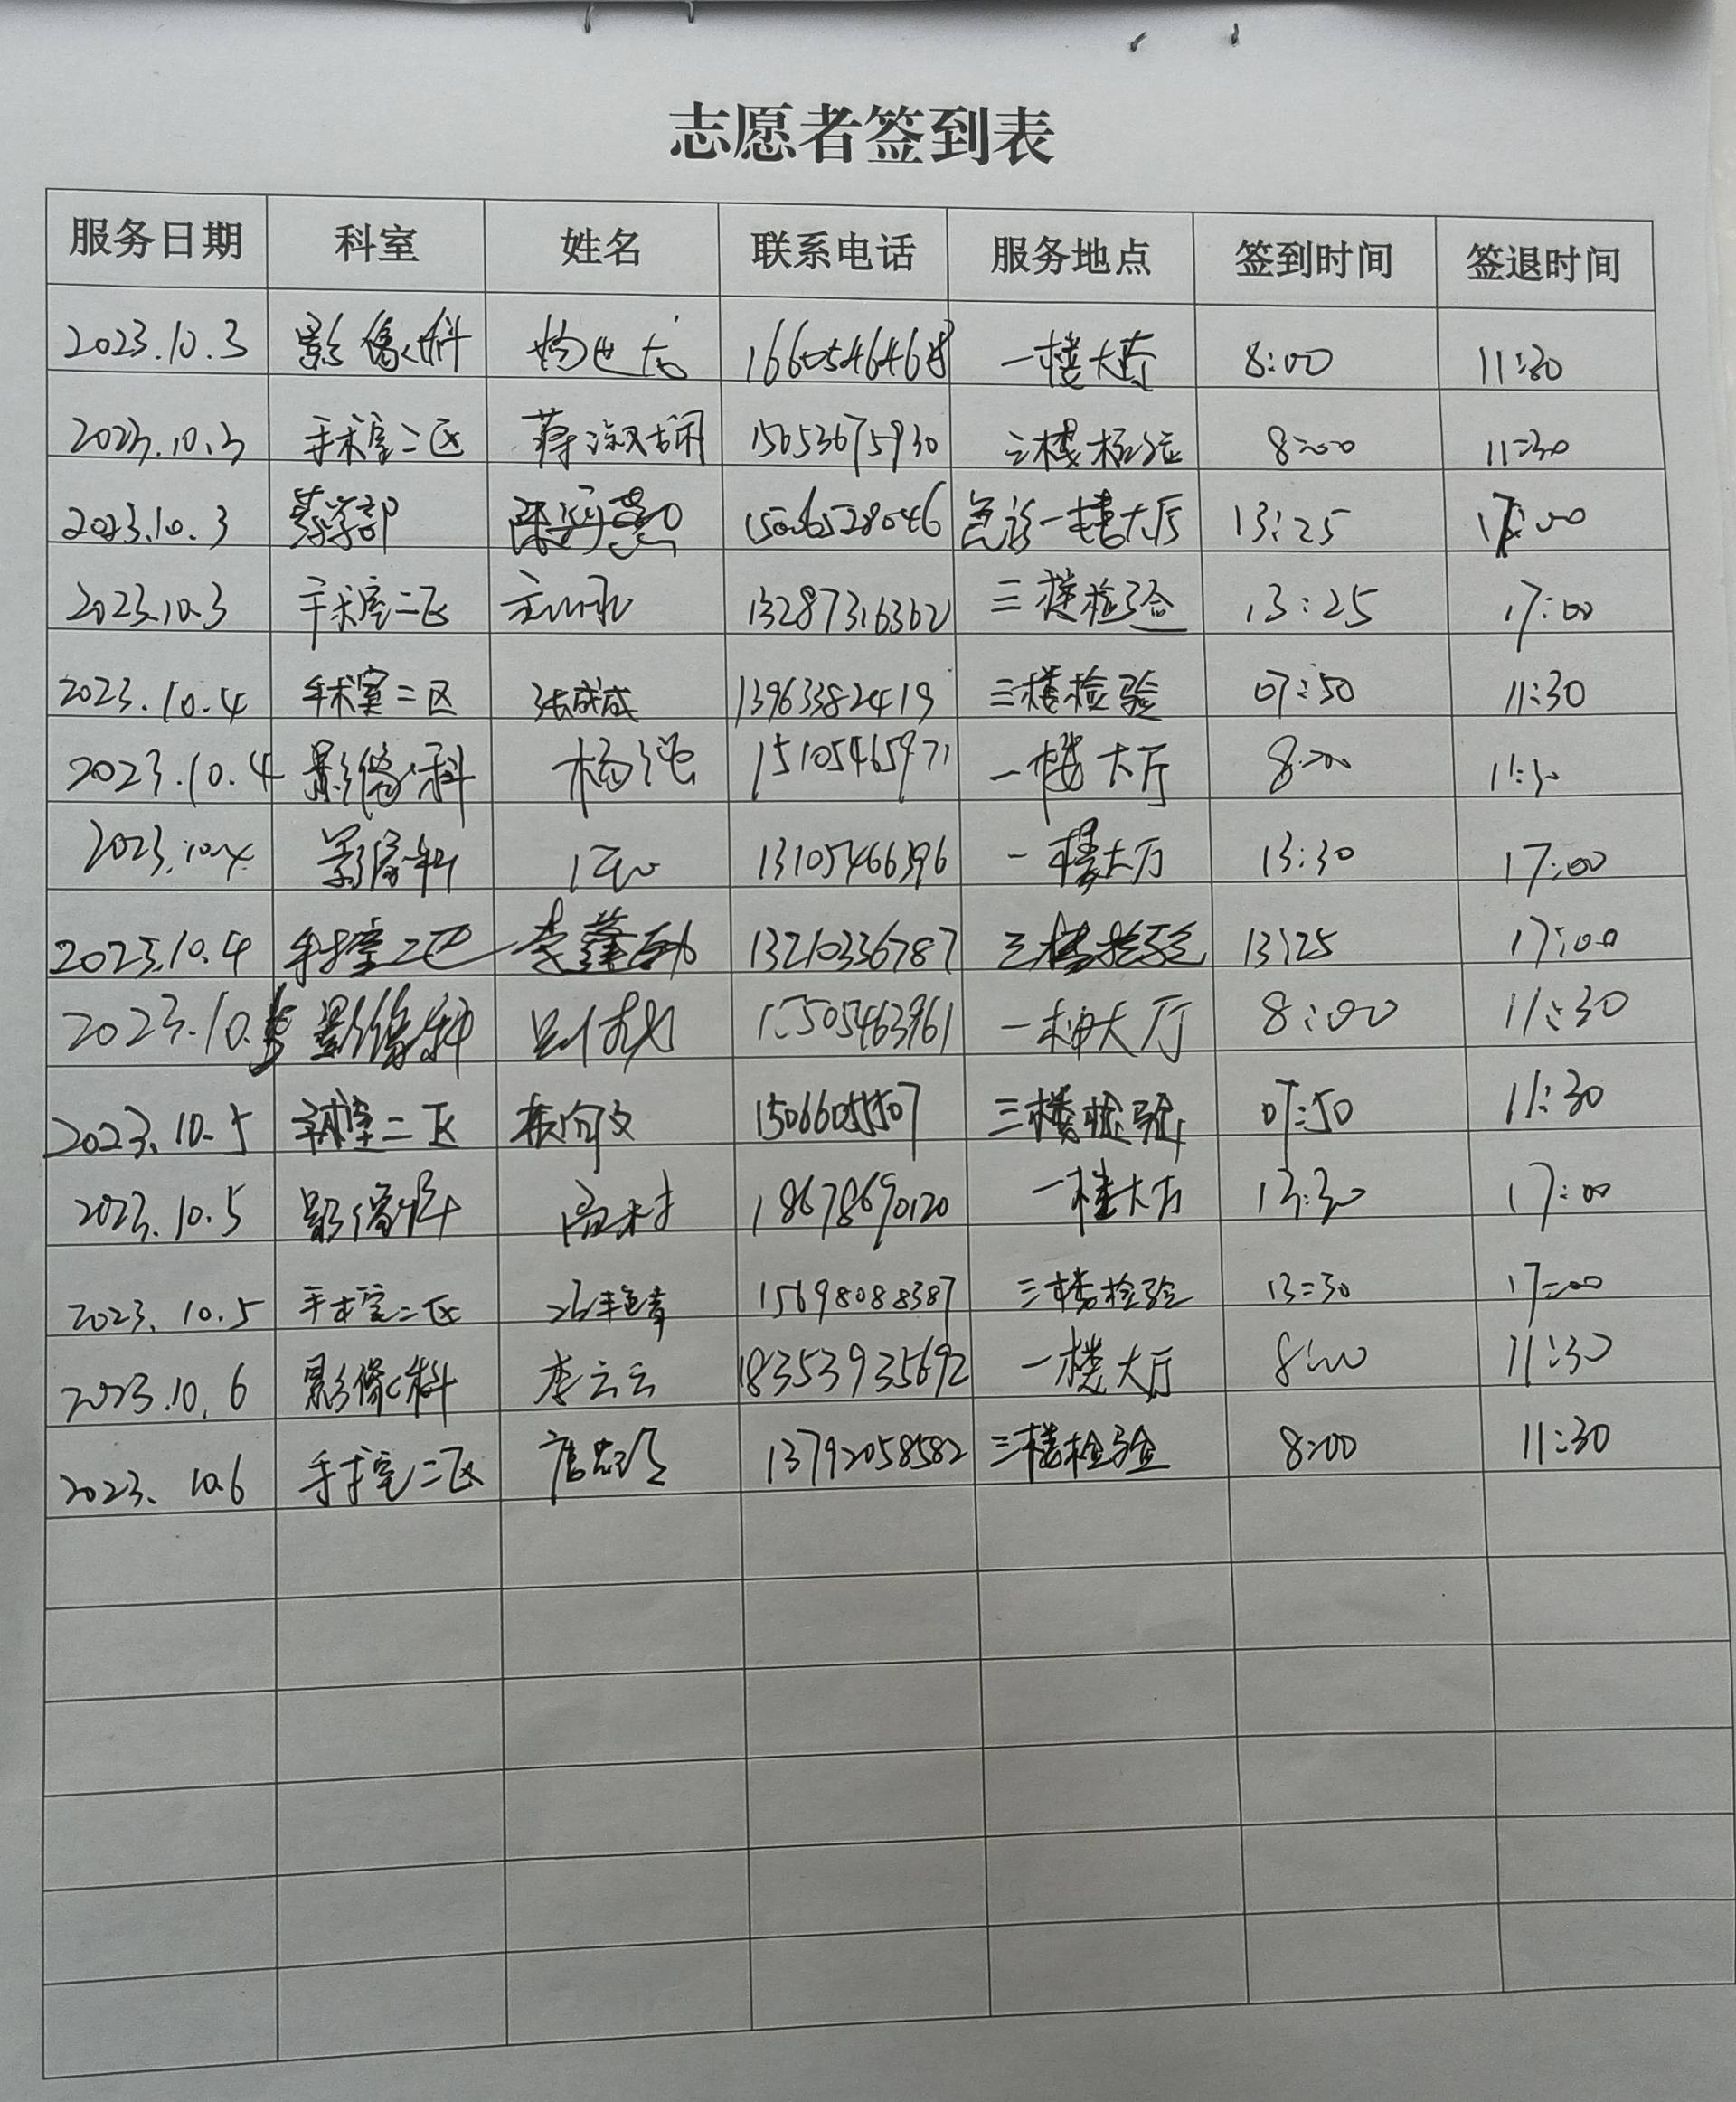 志愿者签到表
服务日期 科室 姓名 联系电话 服务地点 签到时间 签退时间
2023.10.3 影像科 一楼大厅 8:00 11:30
2023.10.3 手术室二区 15653675930 三楼检验 8:00 11:30
2023.10.3 药学部 急诊一楼大厅 13:25 17:00
2023.10.3 手术室二区 13287316362 三楼检验 13:25 17:00
2023.10.4 手术室二区 张成成 13963382419 三楼检验 07:50 11:30
2023.10.4 影像科 杨强 15105465971 一楼大厅 8:00 11:30
2023.10.4 影像科 13105466396 一楼大厅 13:30 17:00
2023.10.4 手术室二区 13210336787 三楼检验 13:25 17:00
2023.10.5 影像科 15505463961 一楼大厅 8:00 11:30
2023.10.5 手术室二区 三楼检验 07:50 11:30
2023.10.5 影像科 高村 18678690120 一楼大厅 13:30 17:00
2023.10.5 手术室二区 15698088387 三楼检验 13:30 17:00
2023.10.6 影像科 李云云 18353935692 一楼大厅 8:00 11:30
2023.10.6 手术室二区 13792058582 三楼检验 8:00 11:30